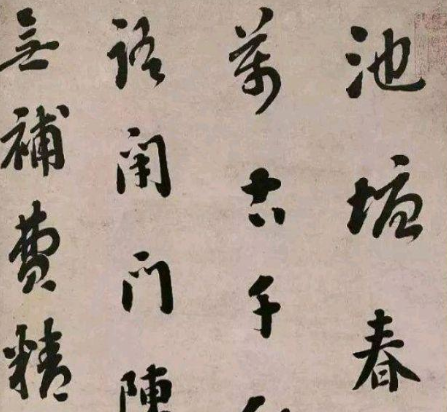 池塘春
萬古千
語閉門陳
無補費精